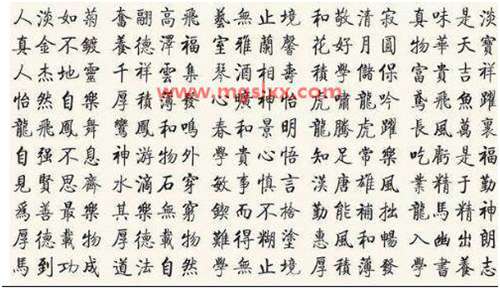 人淡如菊 奮翮高飛 藝無止境 和敬清寂 真味是淡
真金不鍍 養德澤福 室雅蘭馨 花好月圓 物華天寶
人杰地靈 千祥雲集 琴酒相壽 積學儲保 富貴吉祥
www.mgslxx.com
怡然自樂 厚積薄發 心神怡 虎嘯龍吟 鳶飛魚躍
龍飛鳳舞 鸞鳳和鳴 春和景明 龍騰虎躍 長風萬裏
自强不息 神游物外 學貴心悟 知足常樂 吃虧是福
見賢思齊 水滴石穿 敏事慎言 漢唐雄風 業精于勤
爲善最樂 其樂無窮 鍥而不捨 勤能補拙 龍馬精神
厚德載物 厚德載物 難得糊塗 惠風和暢 入幽出朗
馬到功成 道法自然 學無止境 厚積薄發 學書養志